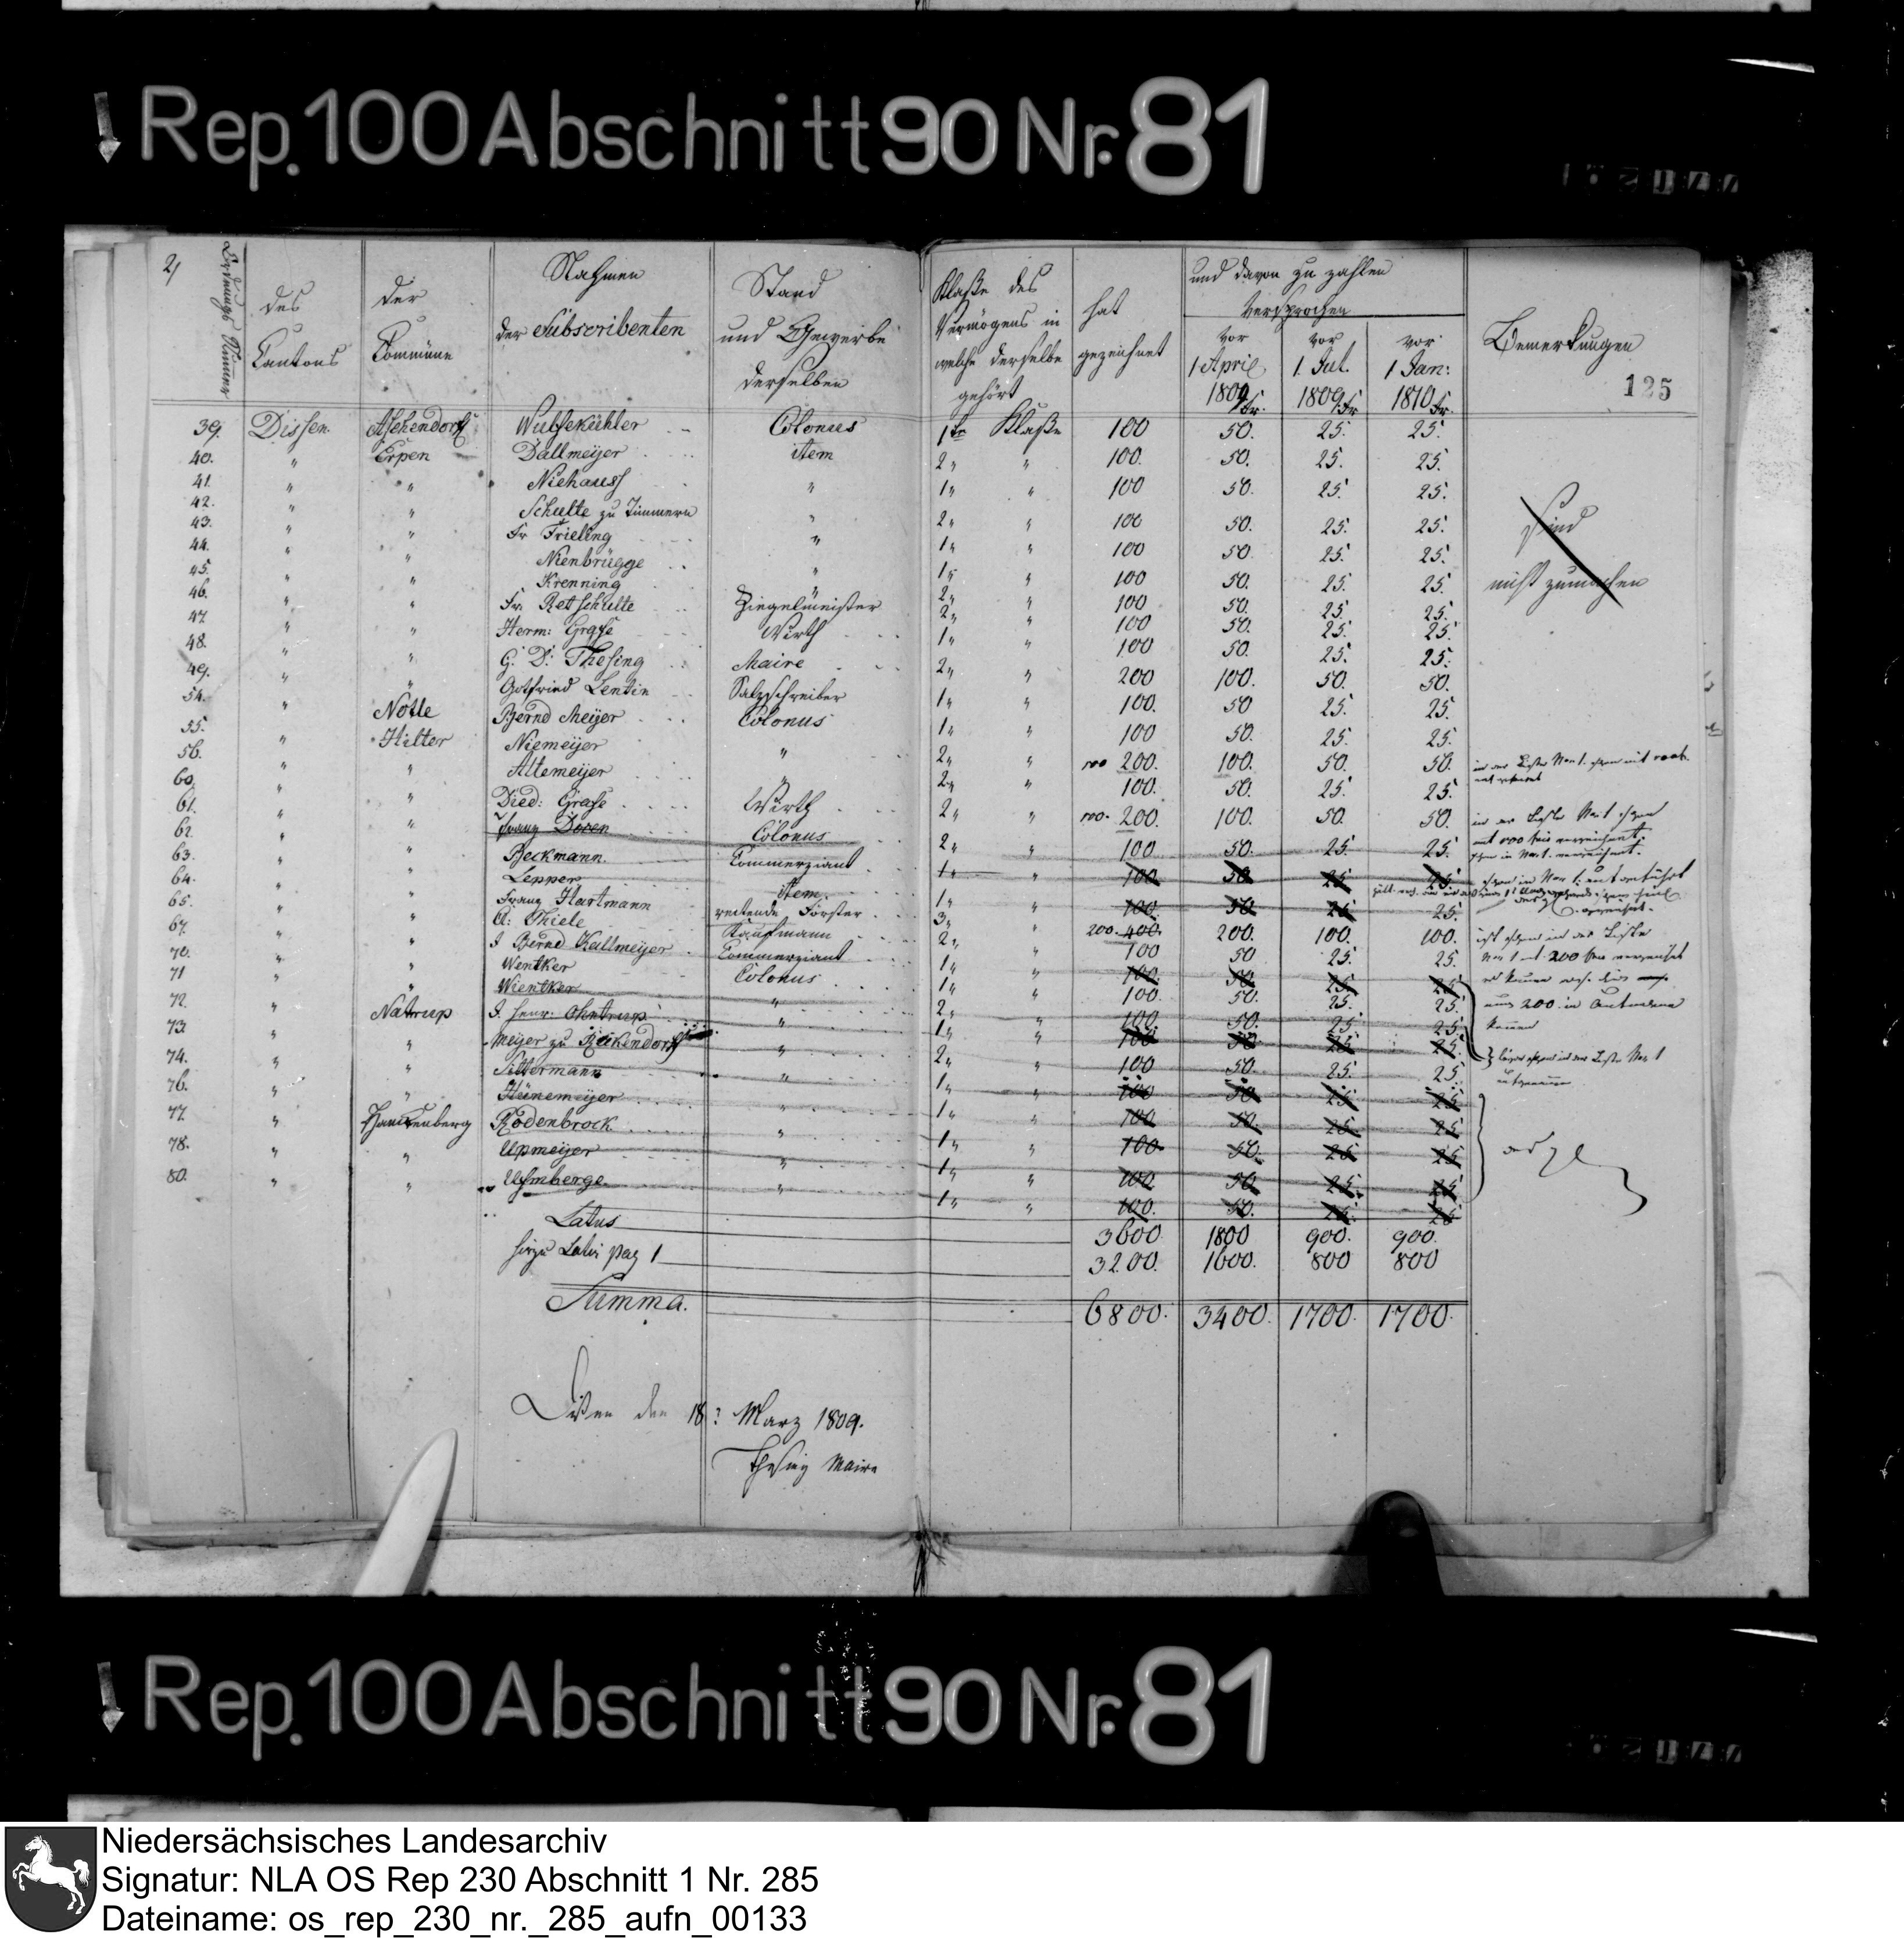 Rep. 100 Abschnitt 90 Nr. 81
2/ Ordnungs Nummer des Cantons der Commüne Nahmen der Subscribenten Stand und Gewerbe derselben Klaße des Vermögens in welche derselbe gehört hat gezeichnet und davon zu zahlen versprochen vor 1 April 1809 Fr. vor 1. Jul. 1809 Fr. vor 1 Jan: 1810 Fr. Bemerkungen
125
39. Dissen Aschendorf Wulfekühler Colonus 1te Klaße 100 50. 25. 25.
40. " Erpen Dallmeijer item 2 " " 100. 50. 25. 25.
41. " " Niehauss " 1 " " 100 50. 25. 25.
42. " " Schulte zu Timmern " 2 " " 100 50. 25. 25.
43. " " Fr Frieling " 1 " " 100 50. 25. 25.
44. " " Nienbrügge " 1 " " 100 50. 25. 25.
45. " " Krenning " 2 " " 100 50. 25. 25.
46. " " Fr. Retschulte Ziegelmeister 2 " " 100 50. 25. 25.
47. " " Herm: Grafe Wirth 1 " " 100 50. 25. 25.
48. " " G. D. Thesing Maire 2 " " 200 100. 50. 50.
49. " " Gotfried Lentin Salzschreiber 1 " " 100. 50 25. 25.
54. " Nolle Bernd Meijer Colonus 1 " " 100 50. 25. 25.
55. " Hilter Niemeijer " 2 " " 200. 100. 50. 50.
56. " " Altemeijer " 2 " " 100. 50. 25. 25.
60. " " Died: Grafe Wirth 2 " " 200. 100. 50. 50.
61. " " Franz Doren Colonus 2 " " 100 50. 25. 25.
62. " " Beckmann Commerziant 1 " " 100 50 25 25
63. " " Lepper item 1 " " 100 50 25 25.
64. " " Franz Hartmann reitende Förster 3 " " 200. 400. 200. 100. 100.
65. " " A: Thiele Kaufmann 2 " " 100 50 25. 25.
67. " " J Bernd Kallmeijer Commerziant 1 " " 100. 50 25 25
70. " " Wentker Colonus 1 " " 100. 50. 25. 25
71 " " Wientker " 2 " " 100 50. 25. 25.
72. " Natrup J. henr: Ohntrup " 1 " " 100 50 25 25.
73 " " Meijer zu " 2 " " 100 50. 25. 25.
74. " " Siltermann " 1 " " 100 50. 25 25
76. " " Hünemeijer " 1 " " 100 50. 25. 25
77. " Hankenberg Rodenbrock " 1 " " 100 50. 25 25
78. " " Upmeijer " 1 " " 100 50. 25. 25
80. " " " 1 " " 100. 50. 25. 25
Sind
nicht zumachen
Latus 3600 1800 900. 900.
hirzu Latus pag 1 3200. 1600. 800 800
Summa. 6800. 3400. 1700. 1700.
Dissen den 18: Marz 1809.
Thesing Maire
Rep. 100 Abschnitt 90 Nr. 81
Niedersächsisches Landesarchiv
Signatur: NLA OS Rep 230 Abschnitt 1 Nr. 285
Dateiname: os_rep_230_nr._285_aufn_00133